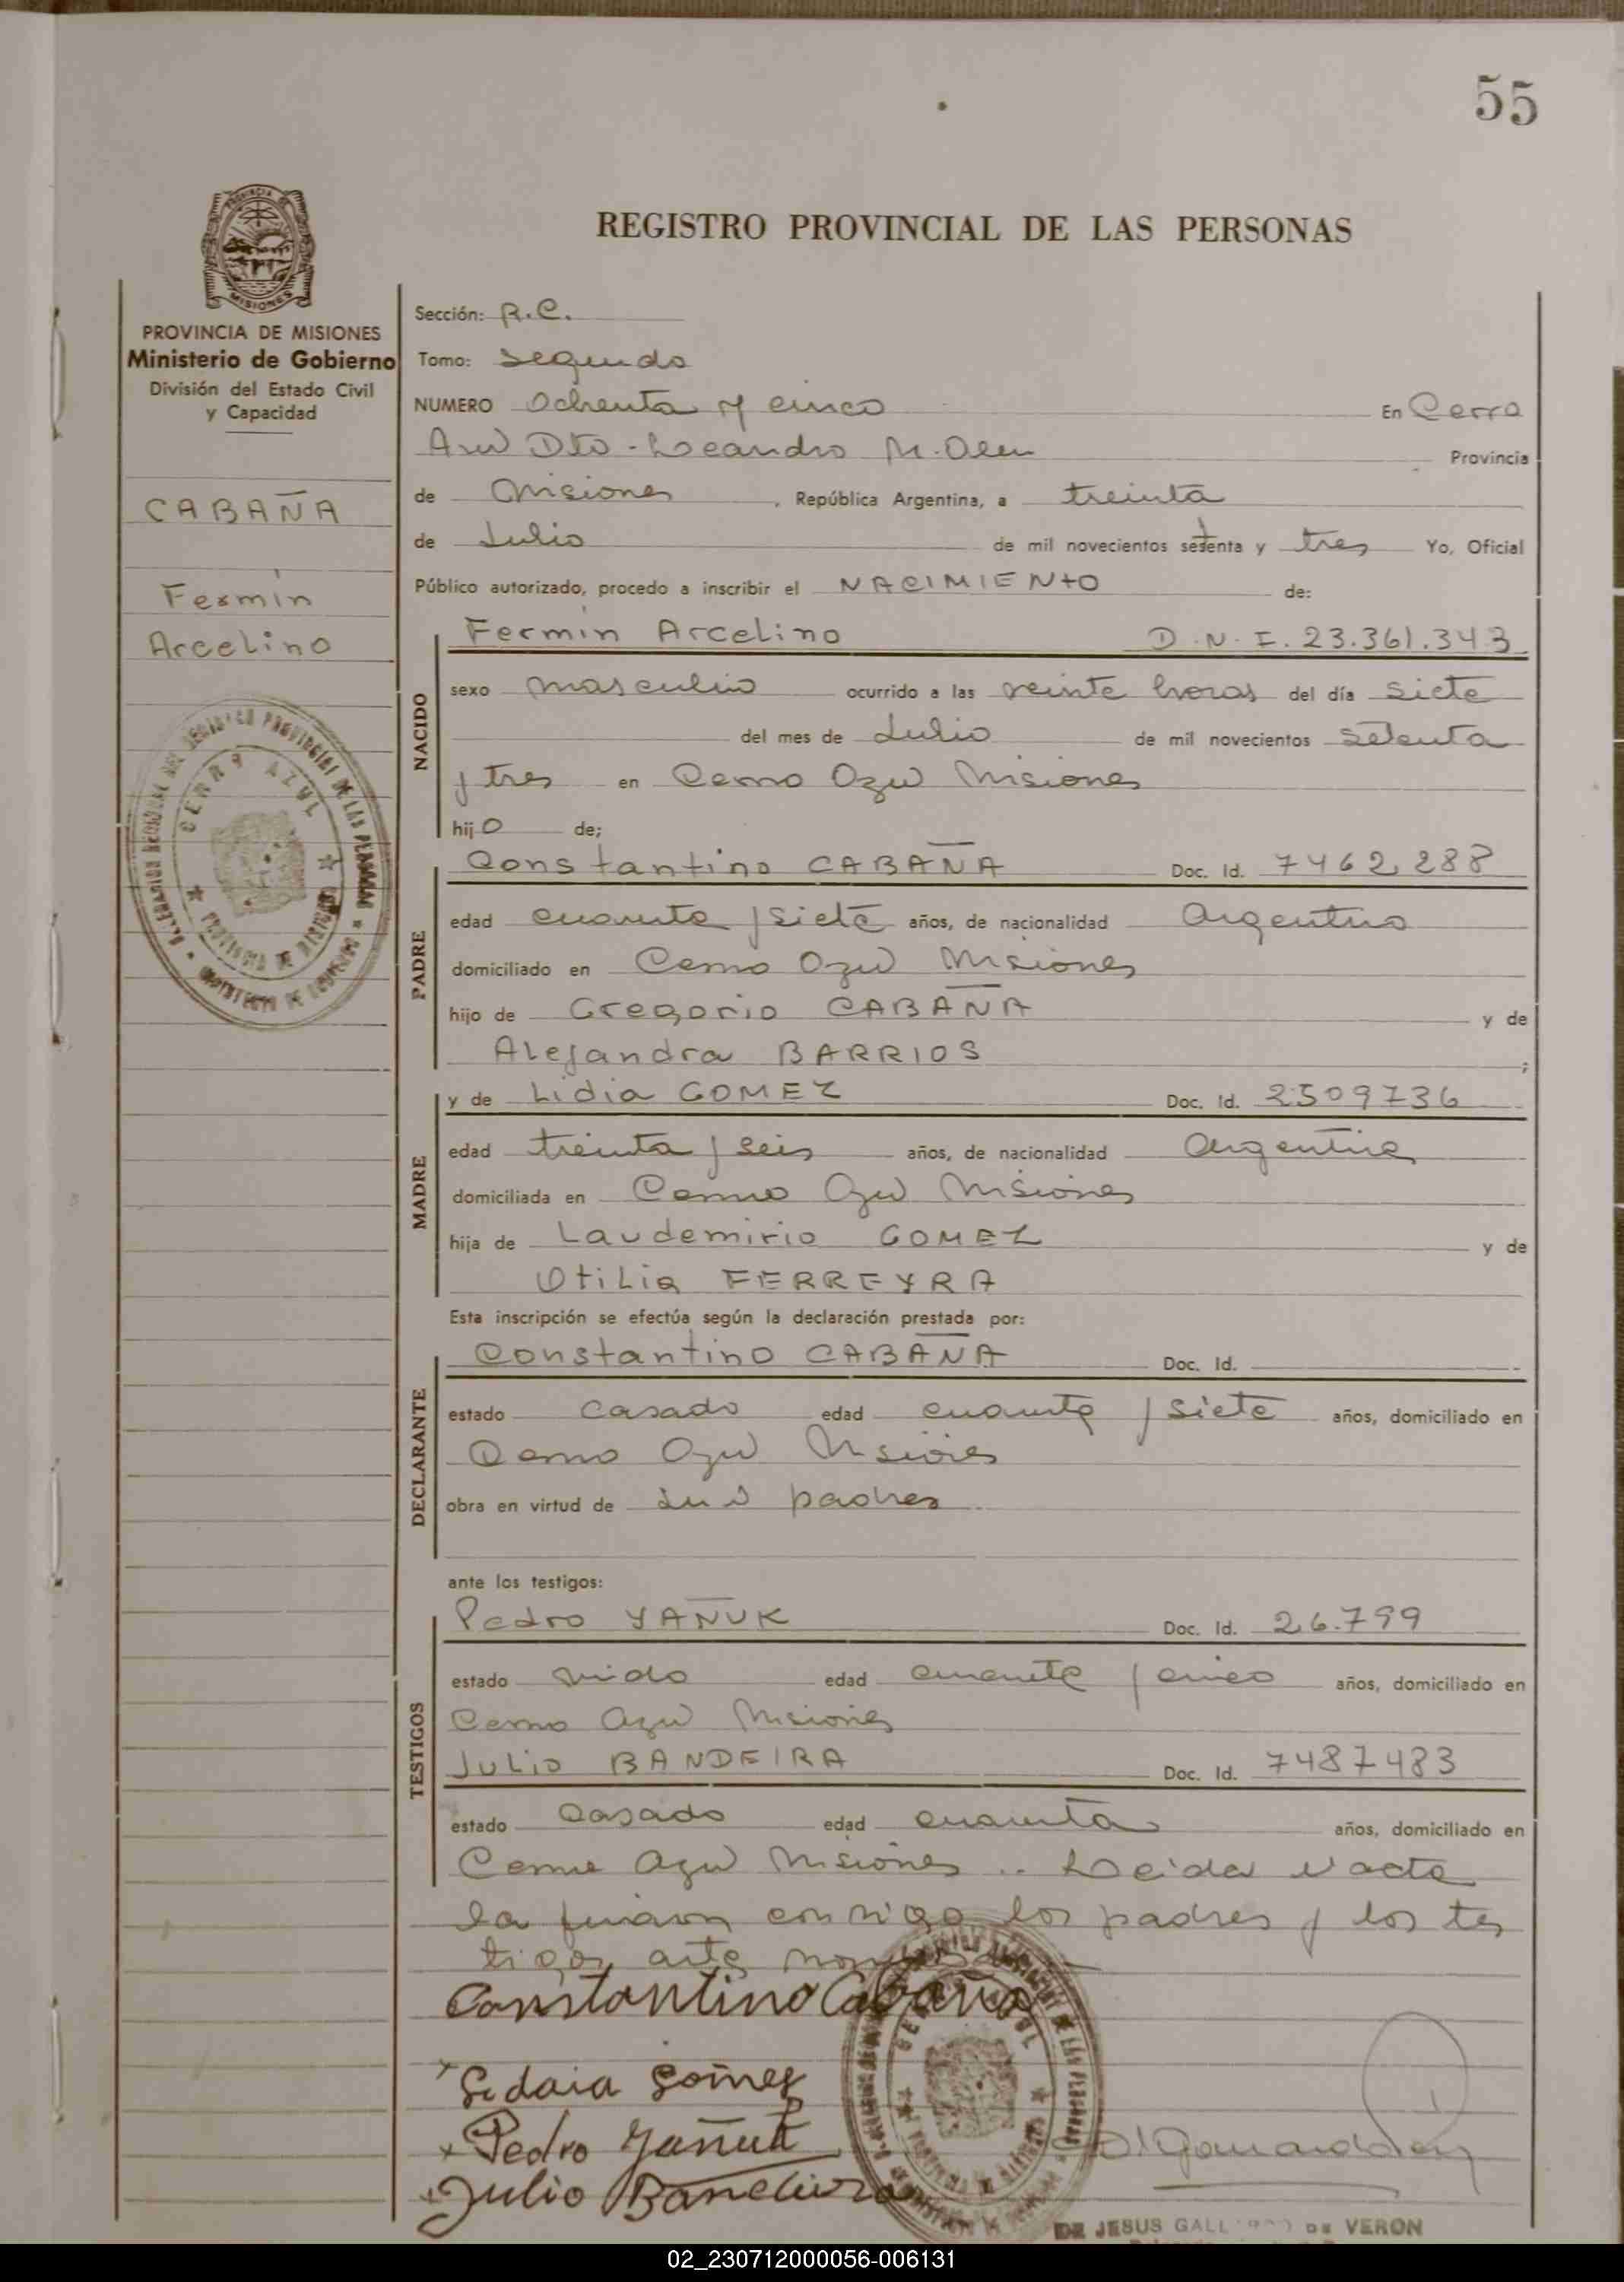 55
REGISTRO PROVINCIAL DE LAS PERSONAS
PROVINCIA DE MISIONES
Ministerio de Gobierno
División del Estado Civil
y Capacidad
CABAÑA
Fermín
Arcelino
Sección: R.C.
Tomo: Segundo
NUMERO Ochenta y cinco En Cerro
Azul Dto - Leandro N. Alem Provincia
de Misiones, República Argentina, a treinta
de Julio de mil novecientos setenta y tres Yo, Oficial
Público autorizado, procedo a inscribir el NACIMIENTO de:
NACIDO
Fermín Arcelino D.N.I. 23.361.343
sexo masculino ocurrido a las veinte horas del día siete
del mes de Julio de mil novecientos setenta
y tres en Cerro Azul Misiones
hijo de;
PADRE
Constantino CABAÑA Doc. Id. 7462.288
edad cuarenta y siete años, de nacionalidad Argentino
domiciliado en Cerro Azul Misiones
hijo de Gregorio CABAÑA y de
Alejandra BARRIOS ;
MADRE
y de Lidia GOMEZ Doc. Id. 2509736
edad treinta y seis años, de nacionalidad Argentina
domiciliada en Cerro Azul Misiones
hija de Laudemirio GOMEZ y de
Otilia FERREYRA
Esta inscripción se efectúa según la declaración prestada por:
DECLARANTE
Constantino CABAÑA Doc. Id.
estado casado edad cuarenta y siete años, domiciliado en
Cerro Azul Misiones
obra en virtud de sus padres
ante los testigos:
TESTIGOS
Pedro YAÑUK Doc. Id. 26.799
estado viudo edad cuarenta y cinco años, domiciliado en
Cerro Azul Misiones
Julio BANDEIRA Doc. Id. 7487483
estado Casado edad cuarenta años, domiciliado en
Cerro Azul Misiones .. Leida el acta
la firman conmigo los padres y los tes
tigos ante
Constantino Cabaña
x Gomez
x Pedro Yañuk
x Julio Bandeira
CERRO AZUL
DE JESUS DE VERON
02_230712000056-006131